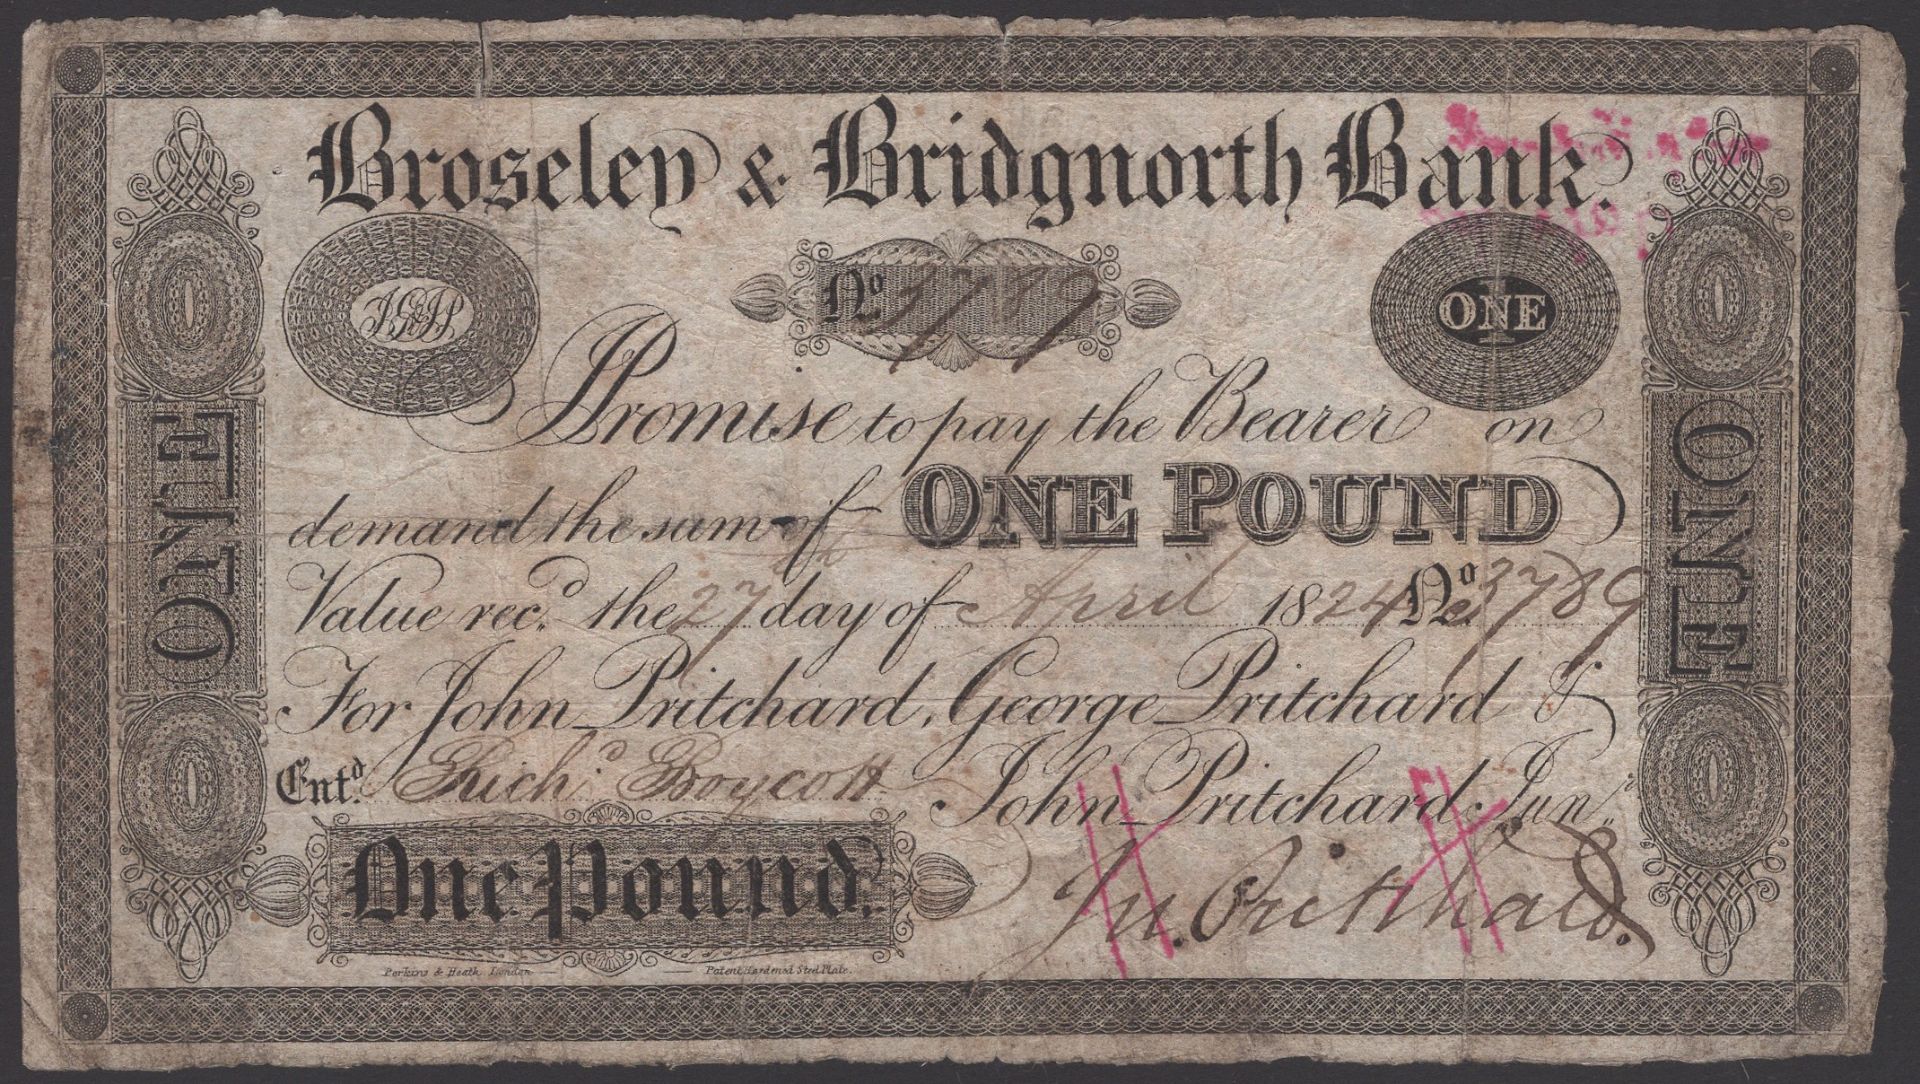 Broseley & Bridgnorth Bank.
J G & J P
No. 3789
ONE
1
ONE
ONE
I Promise to pay the Bearer on
demand the sum of ONE POUND
Value rec.d the 27th day of April 1824 No. 3789
For John Pritchard, George Pritchard &
John Pritchard Jun.r
Ent.d Rich.d Boycott
Jn. Pritchard.
One Pound.
Perkins & Heath, London
Patent Hardened Steel Plate.